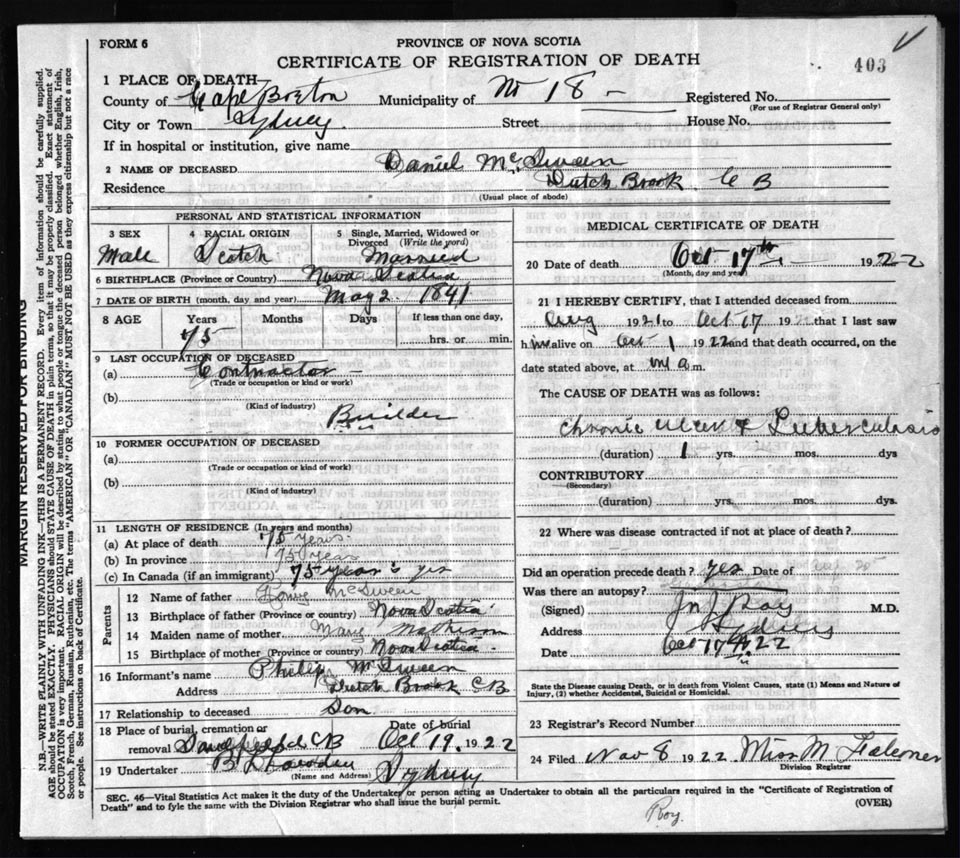 FORM 6
PROVINCE OF NOVA SCOTIA
CERTIFICATE OF REGISTRATION OF DEATH
403
1 PLACE OF DEATH
County of Cape Breton Municipality of No 18 Registered No.
(For use of Registrar General only)
City or Town Sydney Street House No.
If in hospital or institution, give name
2 NAME OF DECEASED Daniel McSween
Residence Dutch Brook C B
(Usual place of abode)
PERSONAL AND STATISTICAL INFORMATION
3 SEX Male
4 RACIAL ORIGIN Scotch
5 Single, Married, Widowed or Divorced (Write the word) Married
6 BIRTHPLACE (Province or Country) Nova Scotia
7 DATE OF BIRTH (month, day and year) May 2 1841
8 AGE Years Months Days If less than one day,
75 hrs. or min.
9 LAST OCCUPATION OF DECEASED
(a) Contractor
(Trade or occupation or kind or work)
(b)
(Kind of industry)
Builder
10 FORMER OCCUPATION OF DECEASED
(a)
(Trade or occupation or kind of work)
(b)
(Kind of industry)
11 LENGTH OF RESIDENCE (In years and months)
(a) At place of death 75 years
(b) In province 75 years
(c) In Canada (if an immigrant) 75 years yes
Parents
12 Name of father McSween
13 Birthplace of father (Province or country) Nova Scotia
14 Maiden name of mother Mary Matheson
15 Birthplace of mother (Province or country) Nova Scotia
16 Informant's name Philip McSween
Address Dutch Brook CB
17 Relationship to deceased Son
18 Place of burial, cremation or removal CB
Date of burial Oct 19, 1922
19 Undertaker Sydney
(Name and Address)
MEDICAL CERTIFICATE OF DEATH
20 Date of death Oct 17th 1922
(Month, day and year)
21 I HEREBY CERTIFY, that I attended deceased from
Aug 1921 to Oct 17 19 that I last saw
him alive on Oct 1 1922 and that death occurred, on the
date stated above, at m.
The CAUSE OF DEATH was as follows:
Chronic ulcer & Tuberculosis
(duration) 1 yrs. mos. dys
CONTRIBUTORY
(Secondary)
(duration) yrs. mos. dys.
22 Where was disease contracted if not at place of death?
Did an operation precede death? yes Date of
Was there an autopsy?
(Signed) Roy M.D.
Address Sydney
Date Oct 17 1922
State the Disease causing Death, or in death from Violent Causes, state (1) Means and Nature of
Injury, (2) whether Accidental, Suicidal or Homicidal.
23 Registrar's Record Number
24 Filed Nov 8 1922 Miss M Falconer
Division Registrar
SEC. 46—Vital Statistics Act makes it the duty of the Undertaker or person acting as Undertaker to obtain all the particulars required in the "Certificate of Registration of
Death" and to fyle the same with the Division Registrar who shall issue the burial permit.
(OVER)
Roy.
MARGIN RESERVED FOR BINDING
N.B.—WRITE PLAINLY WITH UNFADING INK—THIS IS A PERMANENT RECORD. Every item of information should be carefully supplied.
AGE should be stated EXACTLY. PHYSICIANS should STATE CAUSE OF DEATH in plain terms, so that it may be properly classified. Exact statement of
OCCUPATION is very important. RACIAL ORIGIN will be described by stating to what people or tongue the deceased person belonged, whether English, Irish,
Scotch, French, German, Russian, Ruthenian, etc. The terms "AMERICAN" OR "CANADIAN" MUST NOT BE USED as they express citizenship but not a race
or people. See instructions on back of Certificate.